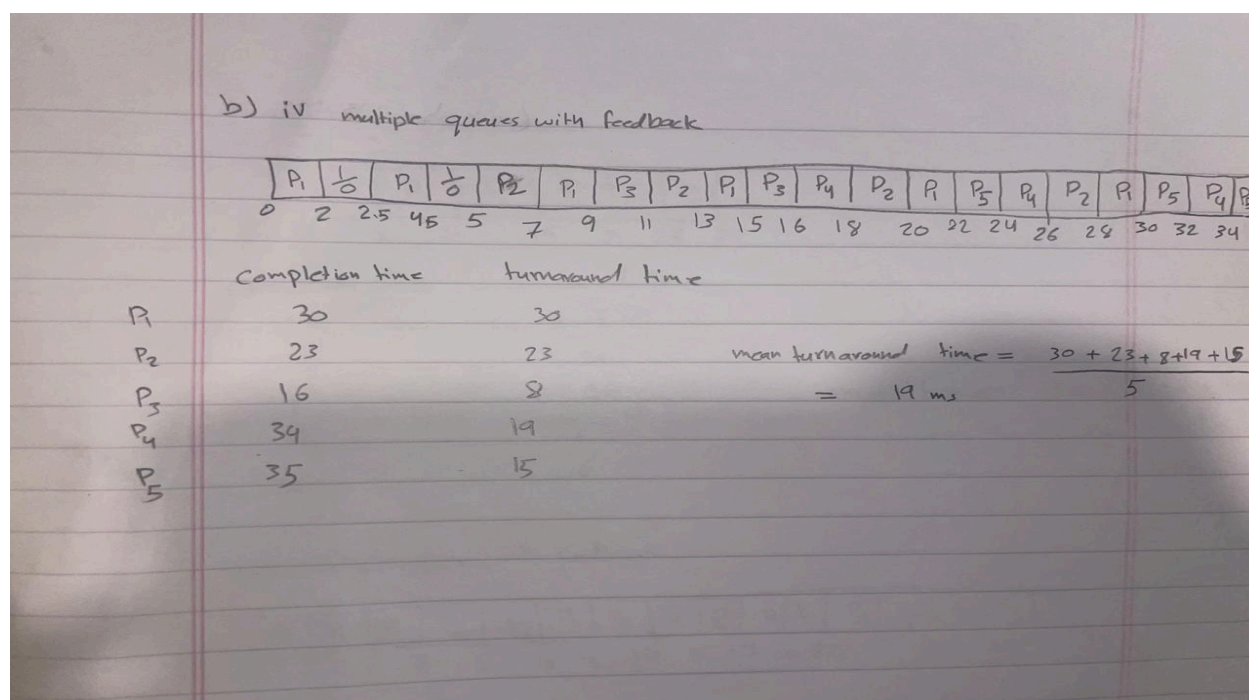 b) iv multiple queues with feedback
P1 I/O P1 I/O P2 P1 P3 P2 P1 P3 P4 P2 P1 P5 P4 P2 P1 P5 P4
0 2 2.5 4.5 5 7 9 11 13 15 16 18 20 22 24 26 28 30 32 34
completion time turnaround time
P1 30 30
P2 23 23 mean turnaround time = 30 + 23 + 8 + 19 + 15
P3 16 8 = 19 ms 5
P4 34 19
P5 35 15